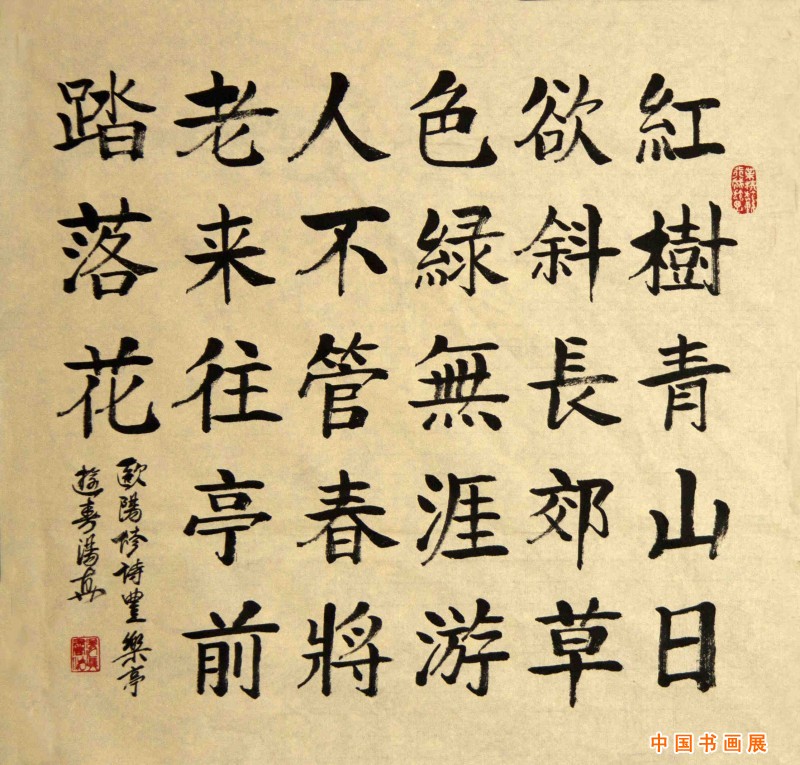 紅樹青山日
欲斜長郊草
色綠無涯游
人不管春將
老来往亭前
踏落花
歐陽修詩豐樂亭
遊春
中国书画展